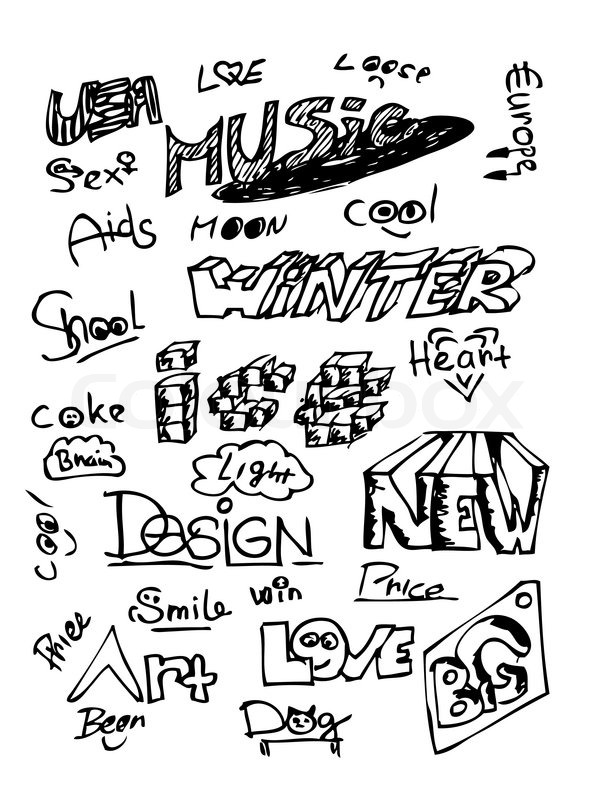 USA
LOVE
Loose
Europe
MUSic
Sexi
Aids
MOON
cool
WiNTER
Shool
ice
Heart
coke
Brain
Light
NEW
cool
DesiGN
Price
Smile
win
Price
Art
LOVE
BIG
Been
Dog